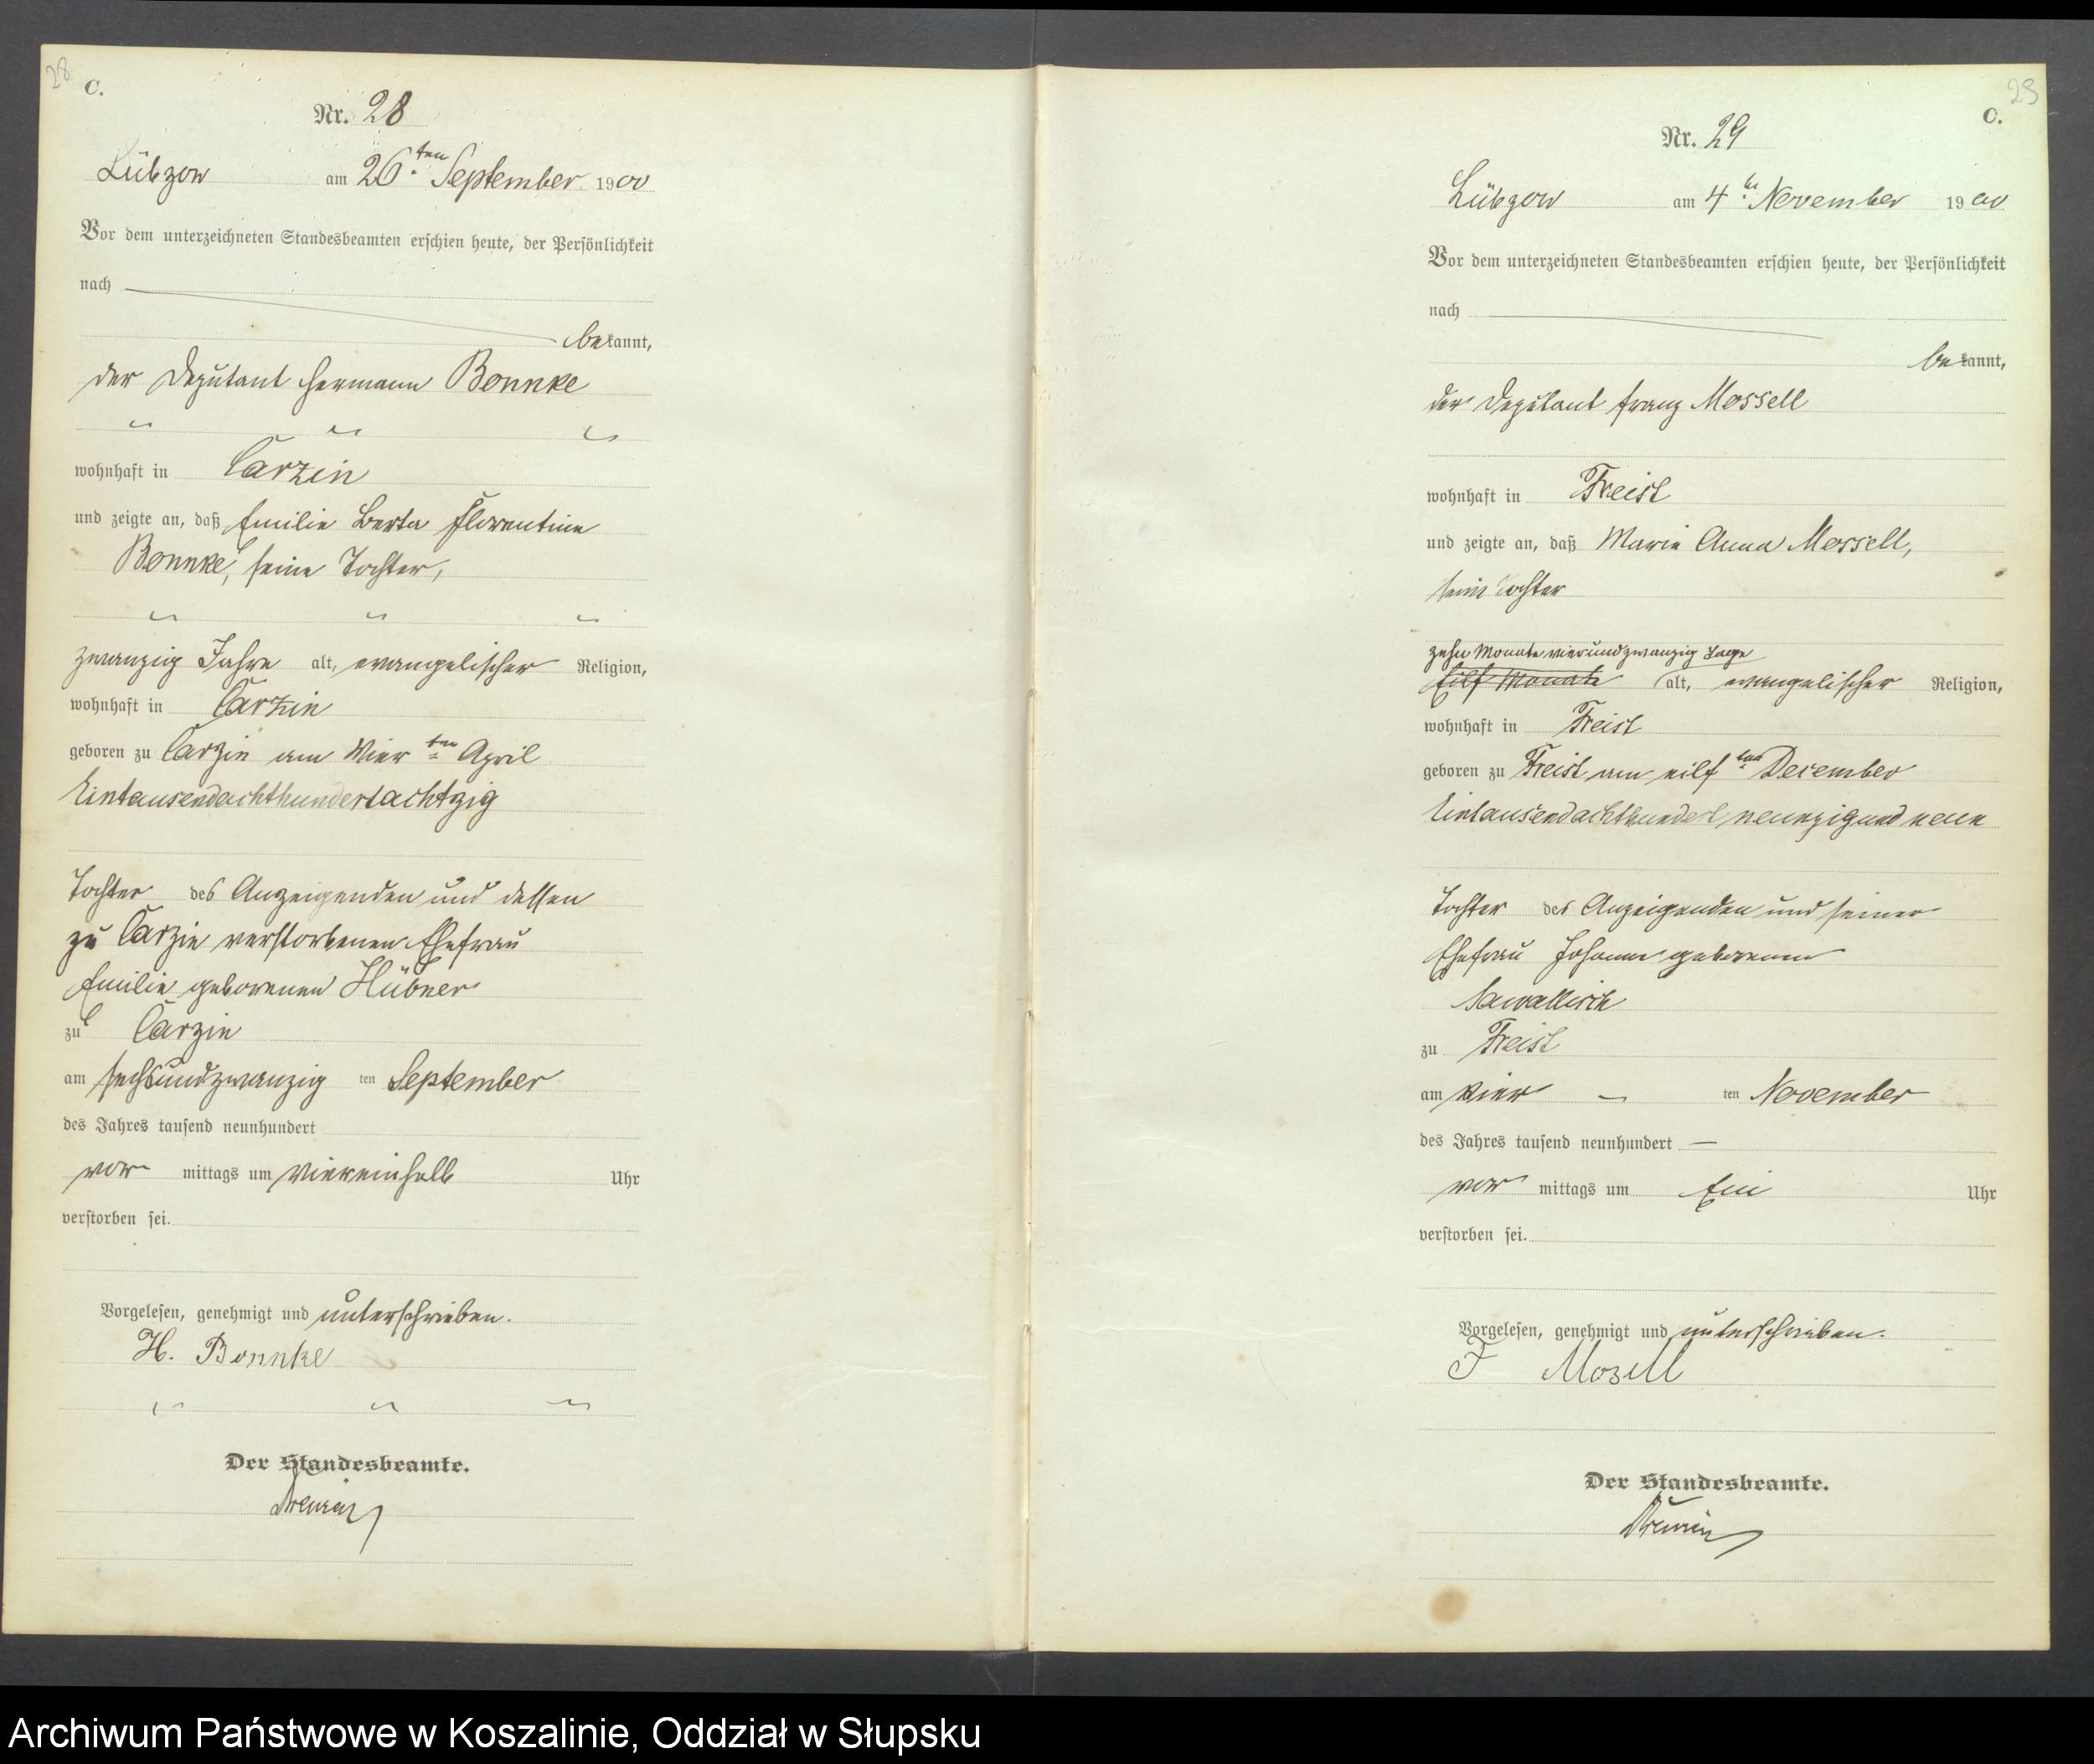 28
C.
Nr. 28
Lübzow am 26ten September 1900
Vor dem unterzeichneten Standesbeamten erschien heute, der Persönlichkeit
nach
bekannt,
der Deputant Hermann Bonnke
wohnhaft in Carzin
und zeigte an, daß Emilie Berta Florentine
Bonnke, seine Tochter,
zwanzig Jahre alt, evangelischer Religion,
wohnhaft in Carzin
geboren zu Carzin am Vierten April
Eintausendachthundertachtzig
Tochter des Anzeigenden und dessen
zu Carzin verstorbenen Ehefrau
Emilie geborenen Hübner
zu Carzin
am sechsundzwanzig ten September
des Jahres tausend neunhundert
vor mittags um viereinhalb Uhr
verstorben sei.
Vorgelesen, genehmigt und unterschrieben.
H. Bonnke
Der Standesbeamte.
29
C.
Nr. 29
Lübzow am 4ten November 1900
Vor dem unterzeichneten Standesbeamten erschien heute, der Persönlichkeit
nach
bekannt,
der Deputant Franz Mossell
wohnhaft in Freist
und zeigte an, daß Marie Anna Mossell,
seine Tochter
zehn Monate vierundzwanzig Tage
Eilf Monate alt, evangelischer Religion,
wohnhaft in Freist
geboren zu Freist am eilften December
Eintausendachthundert neunzigund neun
Tochter des Anzeigenden und seiner
Ehefrau Johanne geborenen
Sawallisch
zu Freist
am vier ten November
des Jahres tausend neunhundert
vor mittags um Ein Uhr
verstorben sei.
Vorgelesen, genehmigt und unterschrieben.
F Mosell
Der Standesbeamte.
Archiwum Państwowe w Koszalinie, Oddział w Słupsku